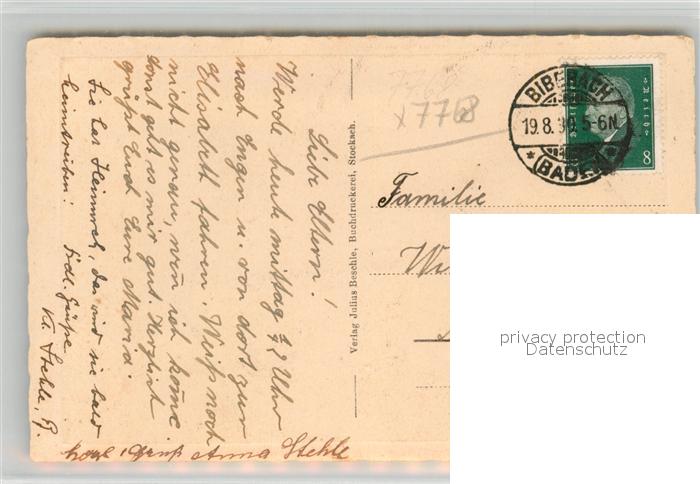 Liebe Eltern!
Werde heute mittag ½2 Uhr
nach Engen u. von dort zur
Elisabeth fahren. Weiß noch
nicht genau, wen ich köme
sonst geht es mir gut. Herzlich
grüßt Euch Eure Maria.
Sie hat Heimweh, da wird sie bald
heimtreiben!
Frdl. Grüße
Kl. Stehle, Lg.
Grüß Anna Stehle
Verlag Julius Beschle, Buchdruckerei, Stockach.
7768
x7768
BIBERACH
19.8. 5-6N.
(BADEN)
8
Familie
privacy protection
Datenschutz